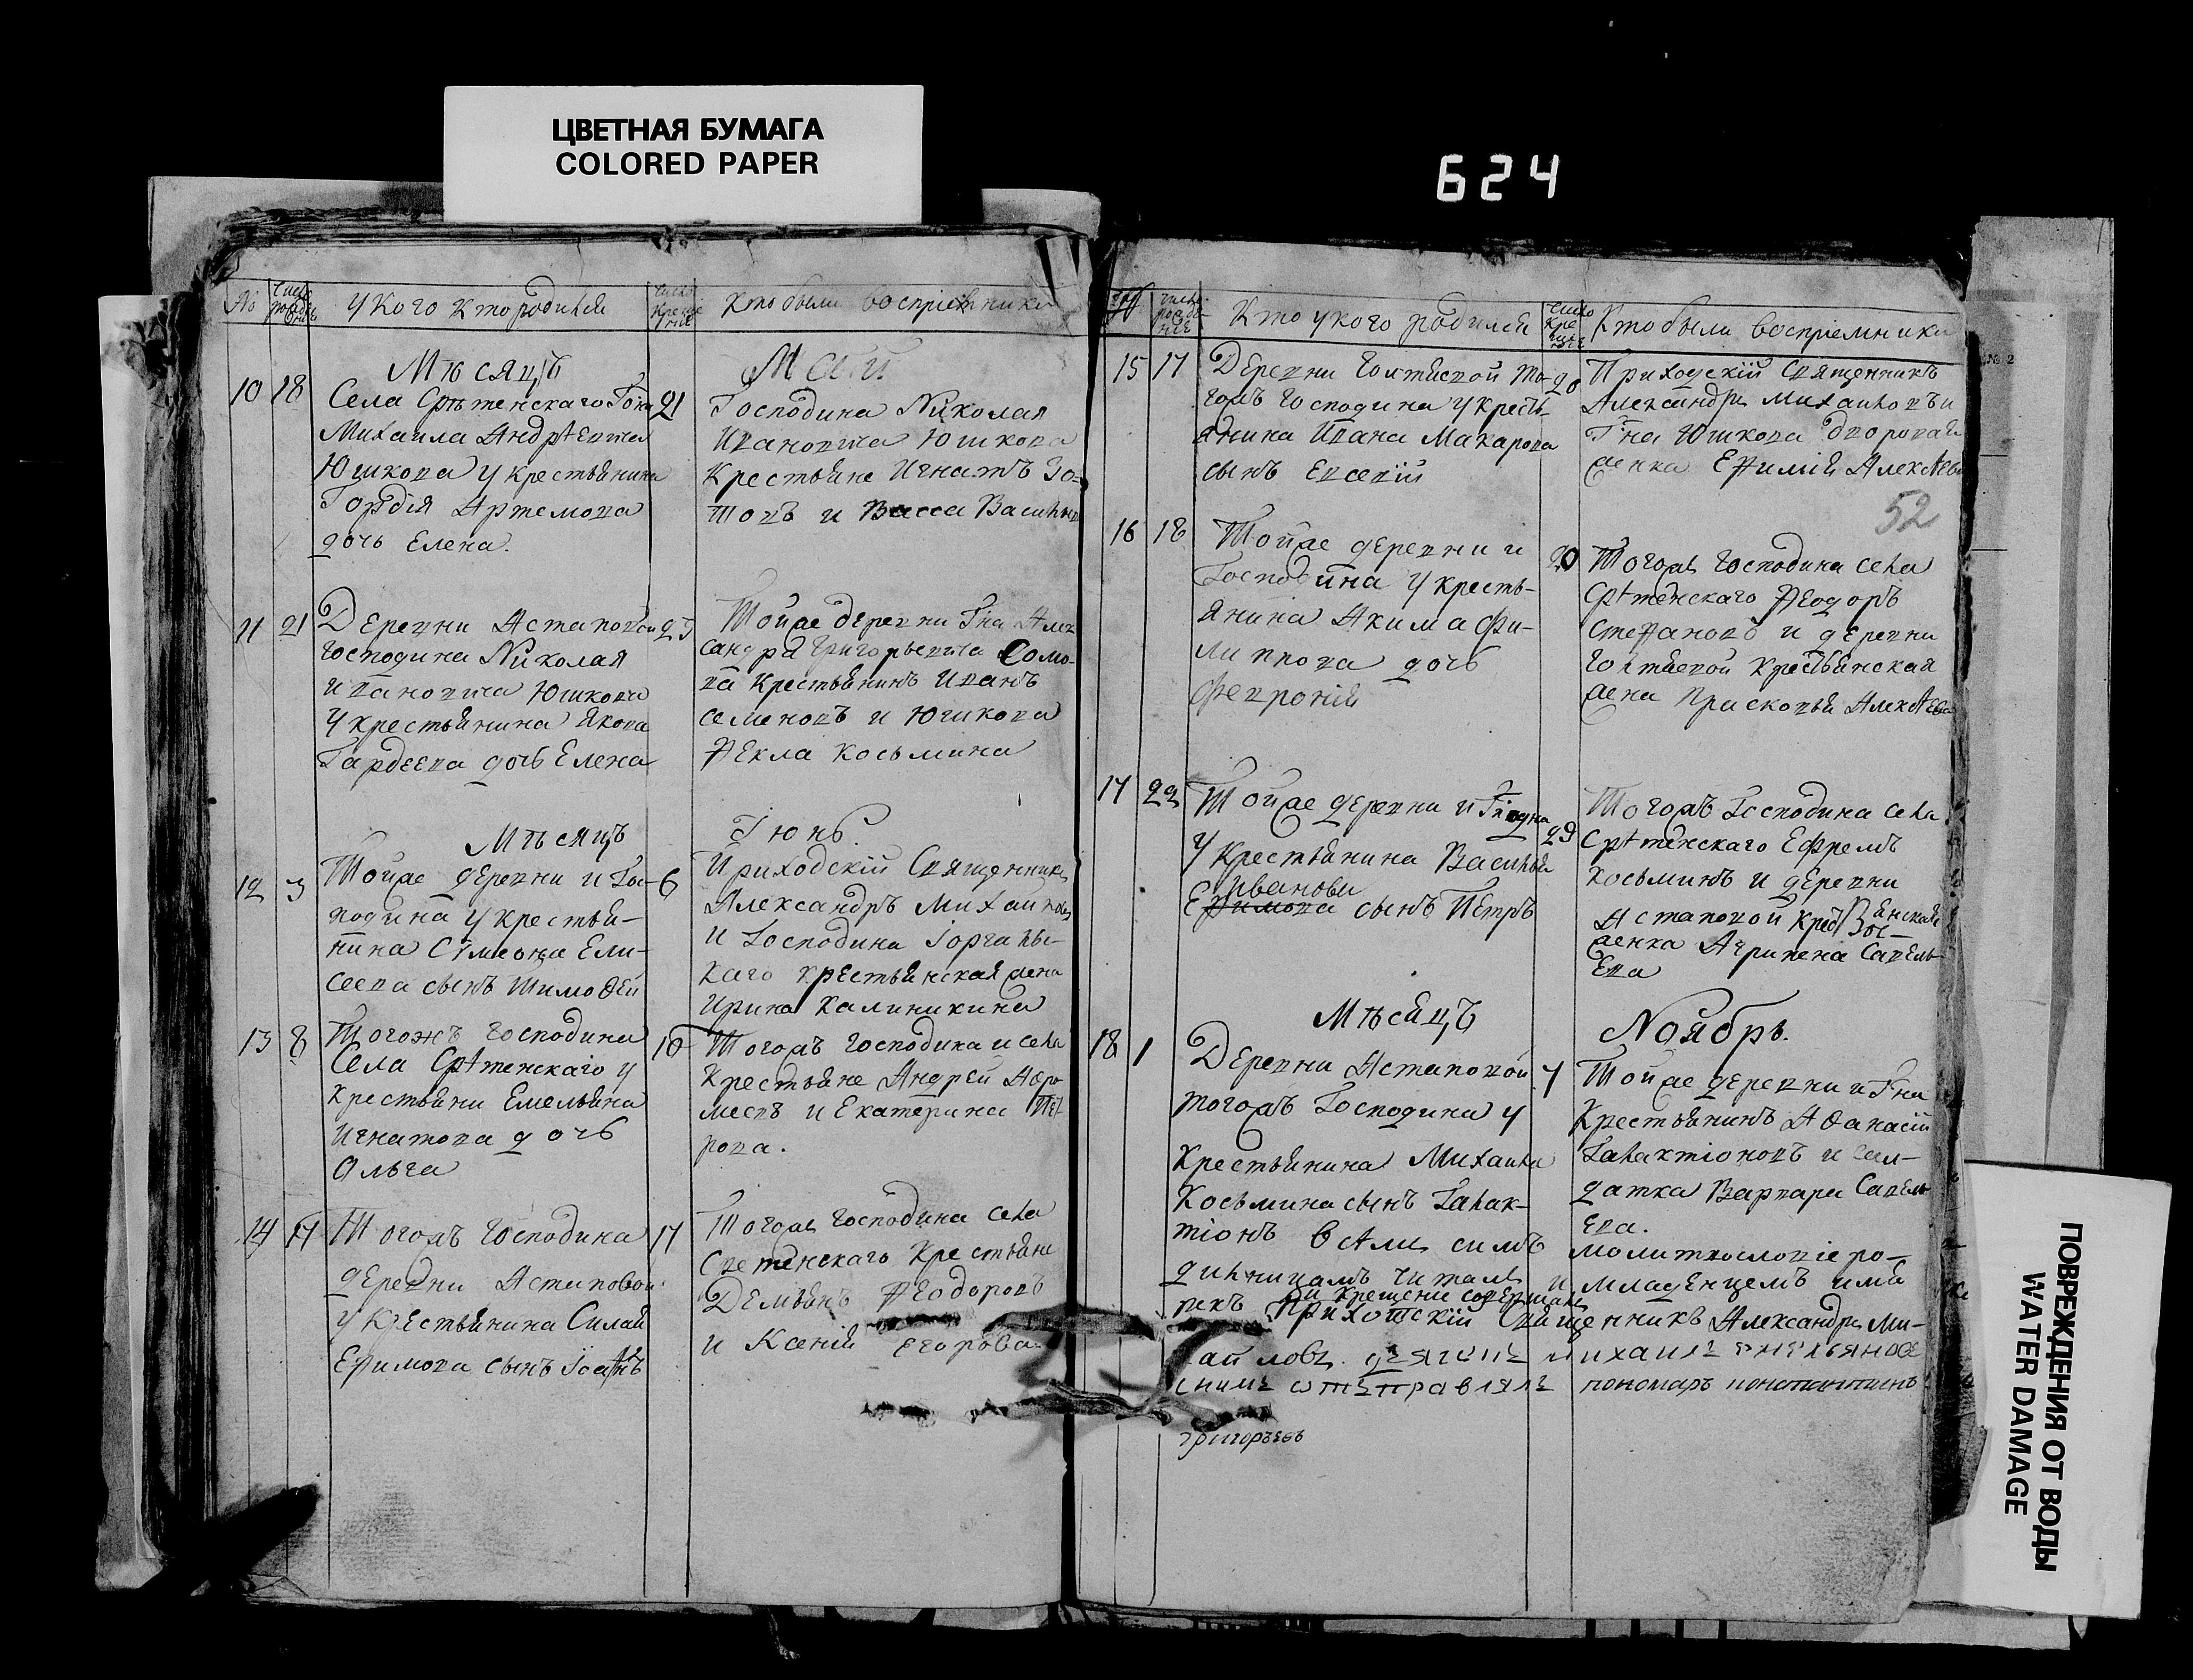 ЦВЕТНАЯ БУМАГА
COLORED PAPER
624
No
число рожденія
У кого кто родился
число крещенія
Кто были воспріемники
Мѣсяцъ
Май
10 18
Села Срѣтенскаго Гдна
Михаила Андрѣевича
Юшкова у крестьянина
Гордія Артемова
дочь Елена.
21
Господина Николая
Ивановича Юшкова
Крестьяне Игнатъ Зо-
товъ и Васса Васильев
11 21
Деревни Астаповой
Господина Николая
Ивановича Юшкова
у крестьянина Якова
Гардеева дочь Елена
23
Тойже деревни Гна Алек
сандра Григорьевича Сомо-
ва Крестьянинъ Иванъ
Семеновъ и Юшкова
Ѳекла Косьмина
Мѣсяцъ
Іюнь
12 3
Тойже деревни и Гос-
подина у крестья-
нина Сѵмеона Ели-
сеева сынъ Тимоѳей
6
Приходскій Священникъ
Александръ Михаиловъ
и Господина Горчаль-
каго крестьянская жена
Ирина Калиникина
13 8
Тогожъ Господина
Села Срѣтенскаго у
Крестьяни Емельяна
Игнатова дочь
Ольга
10
Тогожъ Господина и села
Крестьяне Андрей Абро
месвъ и Екатерина Пет
рова.
14 14
Тогожъ Господина
деревни Астаповой
у Кестьянина Силай
Ефимова сынъ Іоаннъ
17
Тогожъ Господина села
Сретенскаго Крестьяне
Демьянъ Ѳеодоровъ
и Ксенія Егорова
число рожденіе
Кто у кого родился
число крещеніе
Кто были воспріемники
15 17
Деревни Голтяевой то-
гожъ Господина у кресть-
янина Ивана Макарова
сынъ Евсевій
20
Приходскій Священникъ
Александръ Михаиловъ и
Гна Юшкова дворовая
женка Ефимія Алексѣева
52
16 18
Тойже деревни и
Господина у кресть-
янина Акима Фи-
липпова дочь
Февронія
20
Тогожъ Господина села
Срѣтенскаго Ѳеодоръ
Стефановъ и деревни
Голтяевой крестьянская
жена Прасковья Алексѣева
17 22
Тойже деревни и Гподна
у Крестьянина Василья
Иванова
Ефимова сынъ Петръ
23
Тогожъ Господина села
Срѣтенскаго Ефремъ
Косьминъ и деревни
Астаповой крестьянская
женка Агрипена Савель-
ева
Мѣсяцъ
Ноябрь.
18 1
Деревни Астаповой
тогожъ Господина у
Крестьянина Михаила
Косьмина сынъ Галак-
тіонъ
4
Тойже деревни и Гна
Крестьянинъ Аѳанасій
Галактіоновъ и Сал-
датка Варвара Савель-
ева.
всѣмъ симъ молитвословіе ро-
дильницамъ читалъ и младенцемъ имя
рекъ и крещеніе содержалъ
Прихотскій Священникъ Александръ Ми-
хайловъ дьячикъ михаилъ емельяновъ
снимъ отъправлялъ пономарь константинъ
григорьевъ
ПОВРЕЖДЕНИЯ ОТ ВОДЫ
WATER DAMAGE